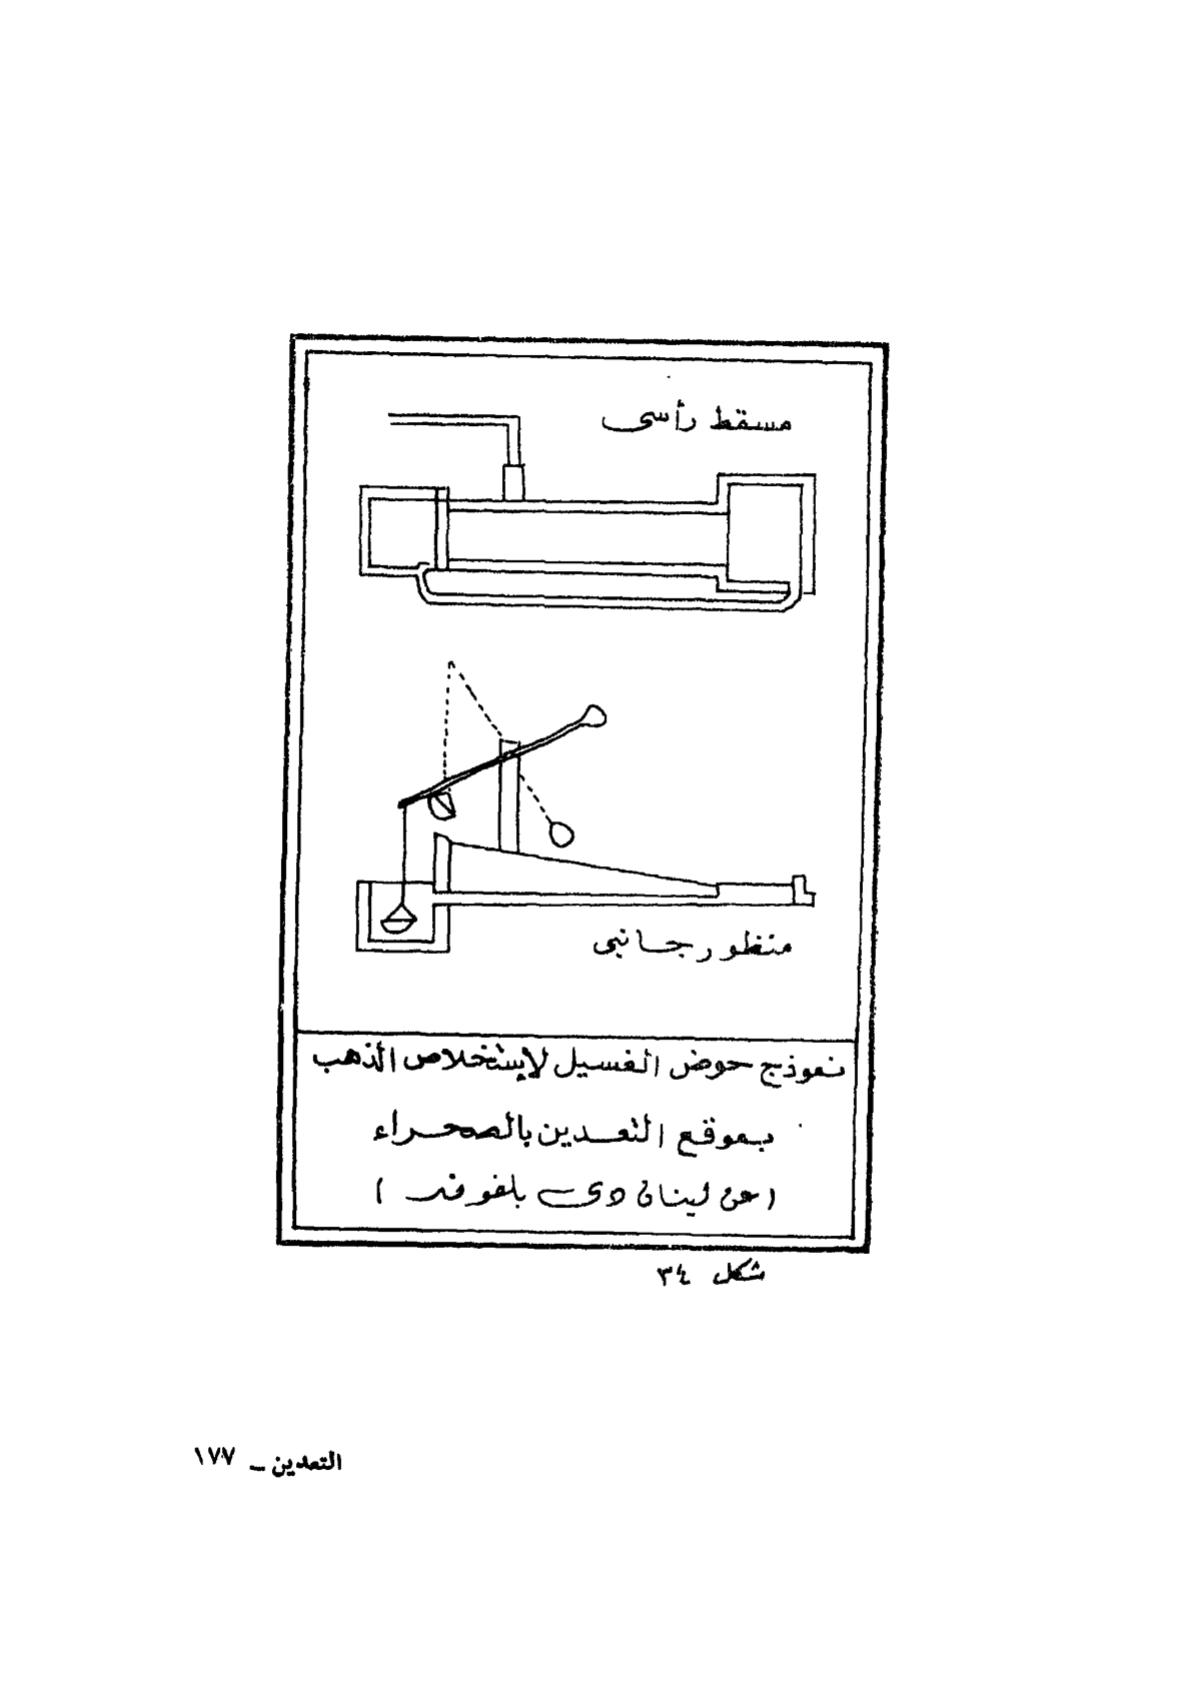 مسقط رأسى
منظور جانبى
نموذج حوض الغسيل لإستخلاص الذهب
بموقع التعدين بالصحراء
(عن لينان دى بلفوند)
شكل ٣٤
التعدين ــ ١٧٧